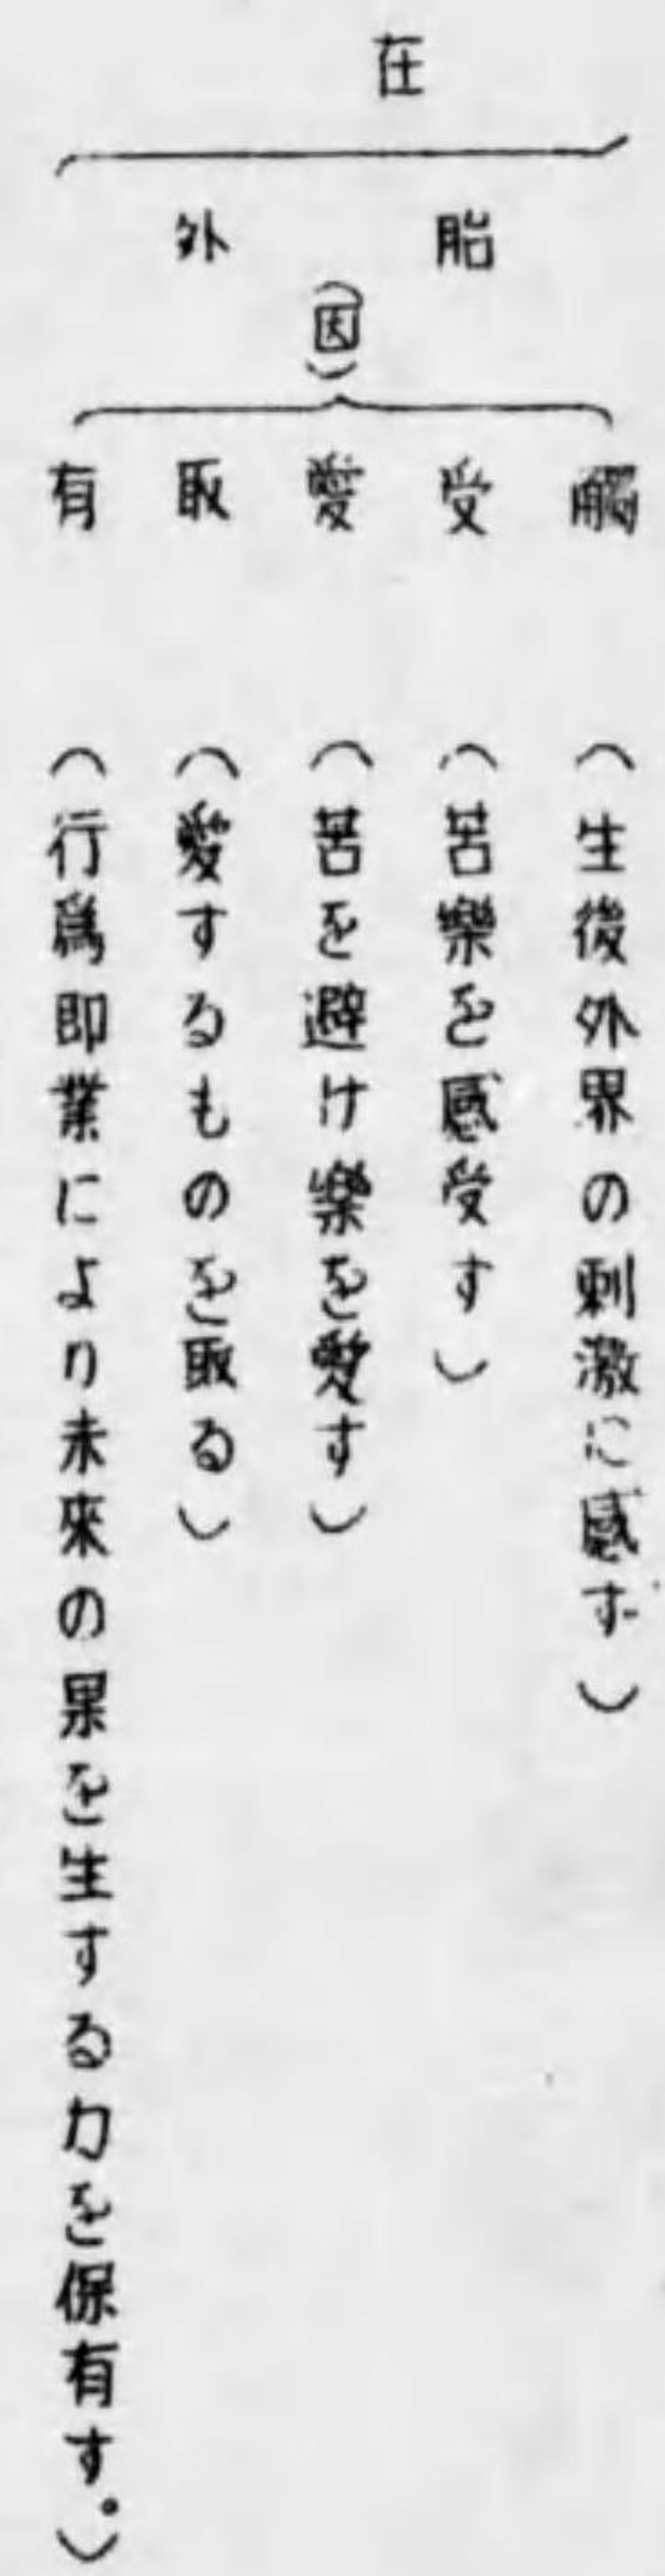 在
胎
外
(因)
觸 (生後外界の刺激に感ず)
受 (苦樂を感受す)
愛 (苦を避け樂を愛す)
取 (愛するものを取る)
有 (行爲即業により未來の果を生する力を保有す。)